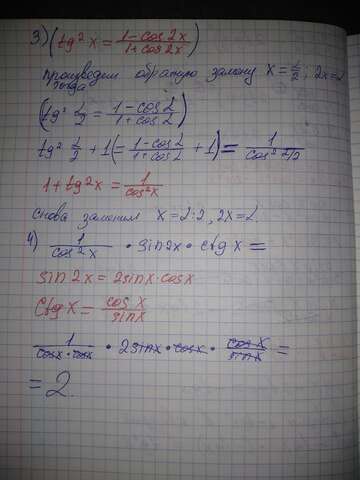 3) (tg² x = (1 - cos 2x)/(1 + cos 2x))
произведем обратную замену x = α/2, 2x = α
тогда
(tg² α/2 = (1 - cos α)/(1 + cos α))
tg² α/2 + 1 (= (1 - cos α)/(1 + cos α) + 1) = 1/(cos² α/2)
1 + tg² x = 1/(cos² x)
снова заменим x = α : 2, 2x = α.
4) 1/(cos² x) · sin 2x · ctg x =
sin 2x = 2 sin x · cos x
ctg x = cos x/sin x
1/(cos x · cos x) · 2 sin x · cos x · cos x/sin x =
= 2.